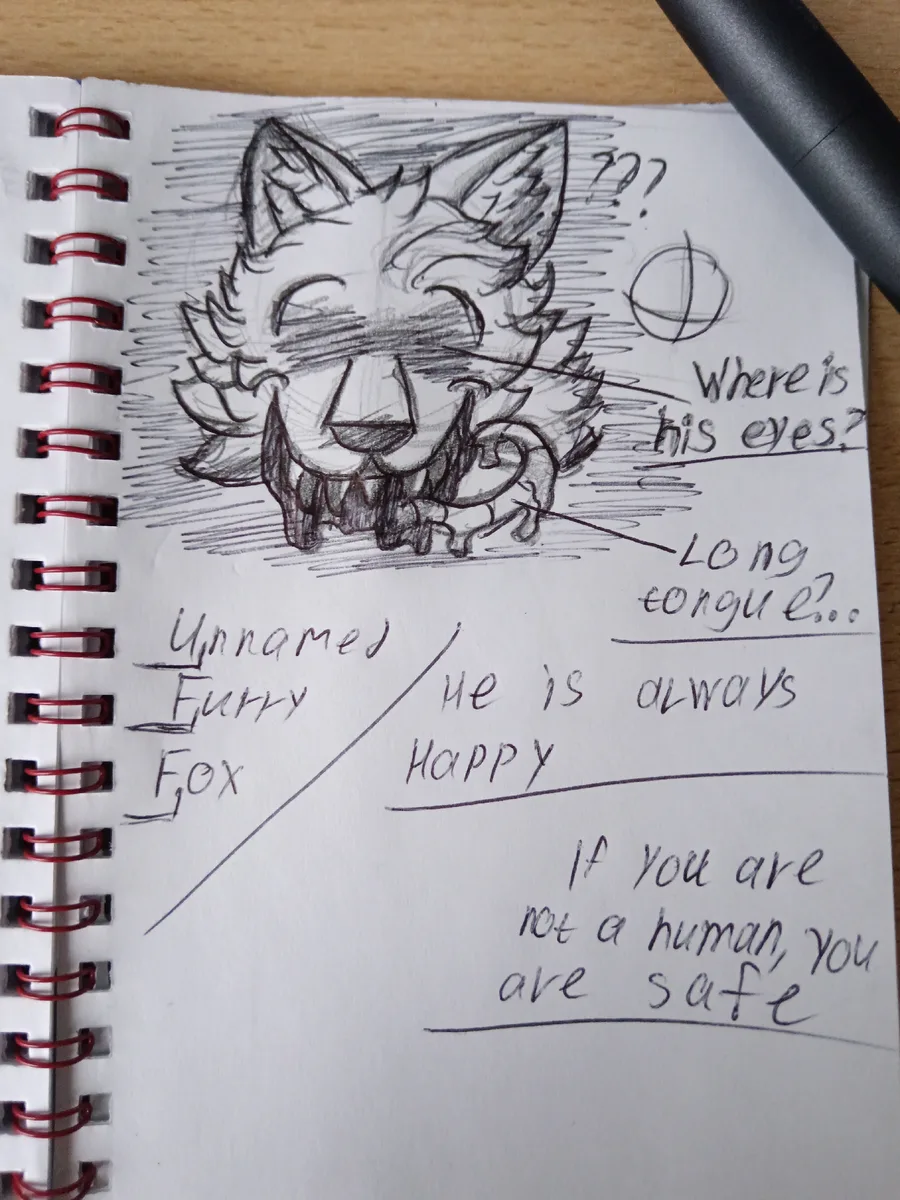 ???
Where is
his eyes?
Long
tongue?...
Unnamed
Furry
Fox
He is always
Happy
If you are
not a human, you
are safe